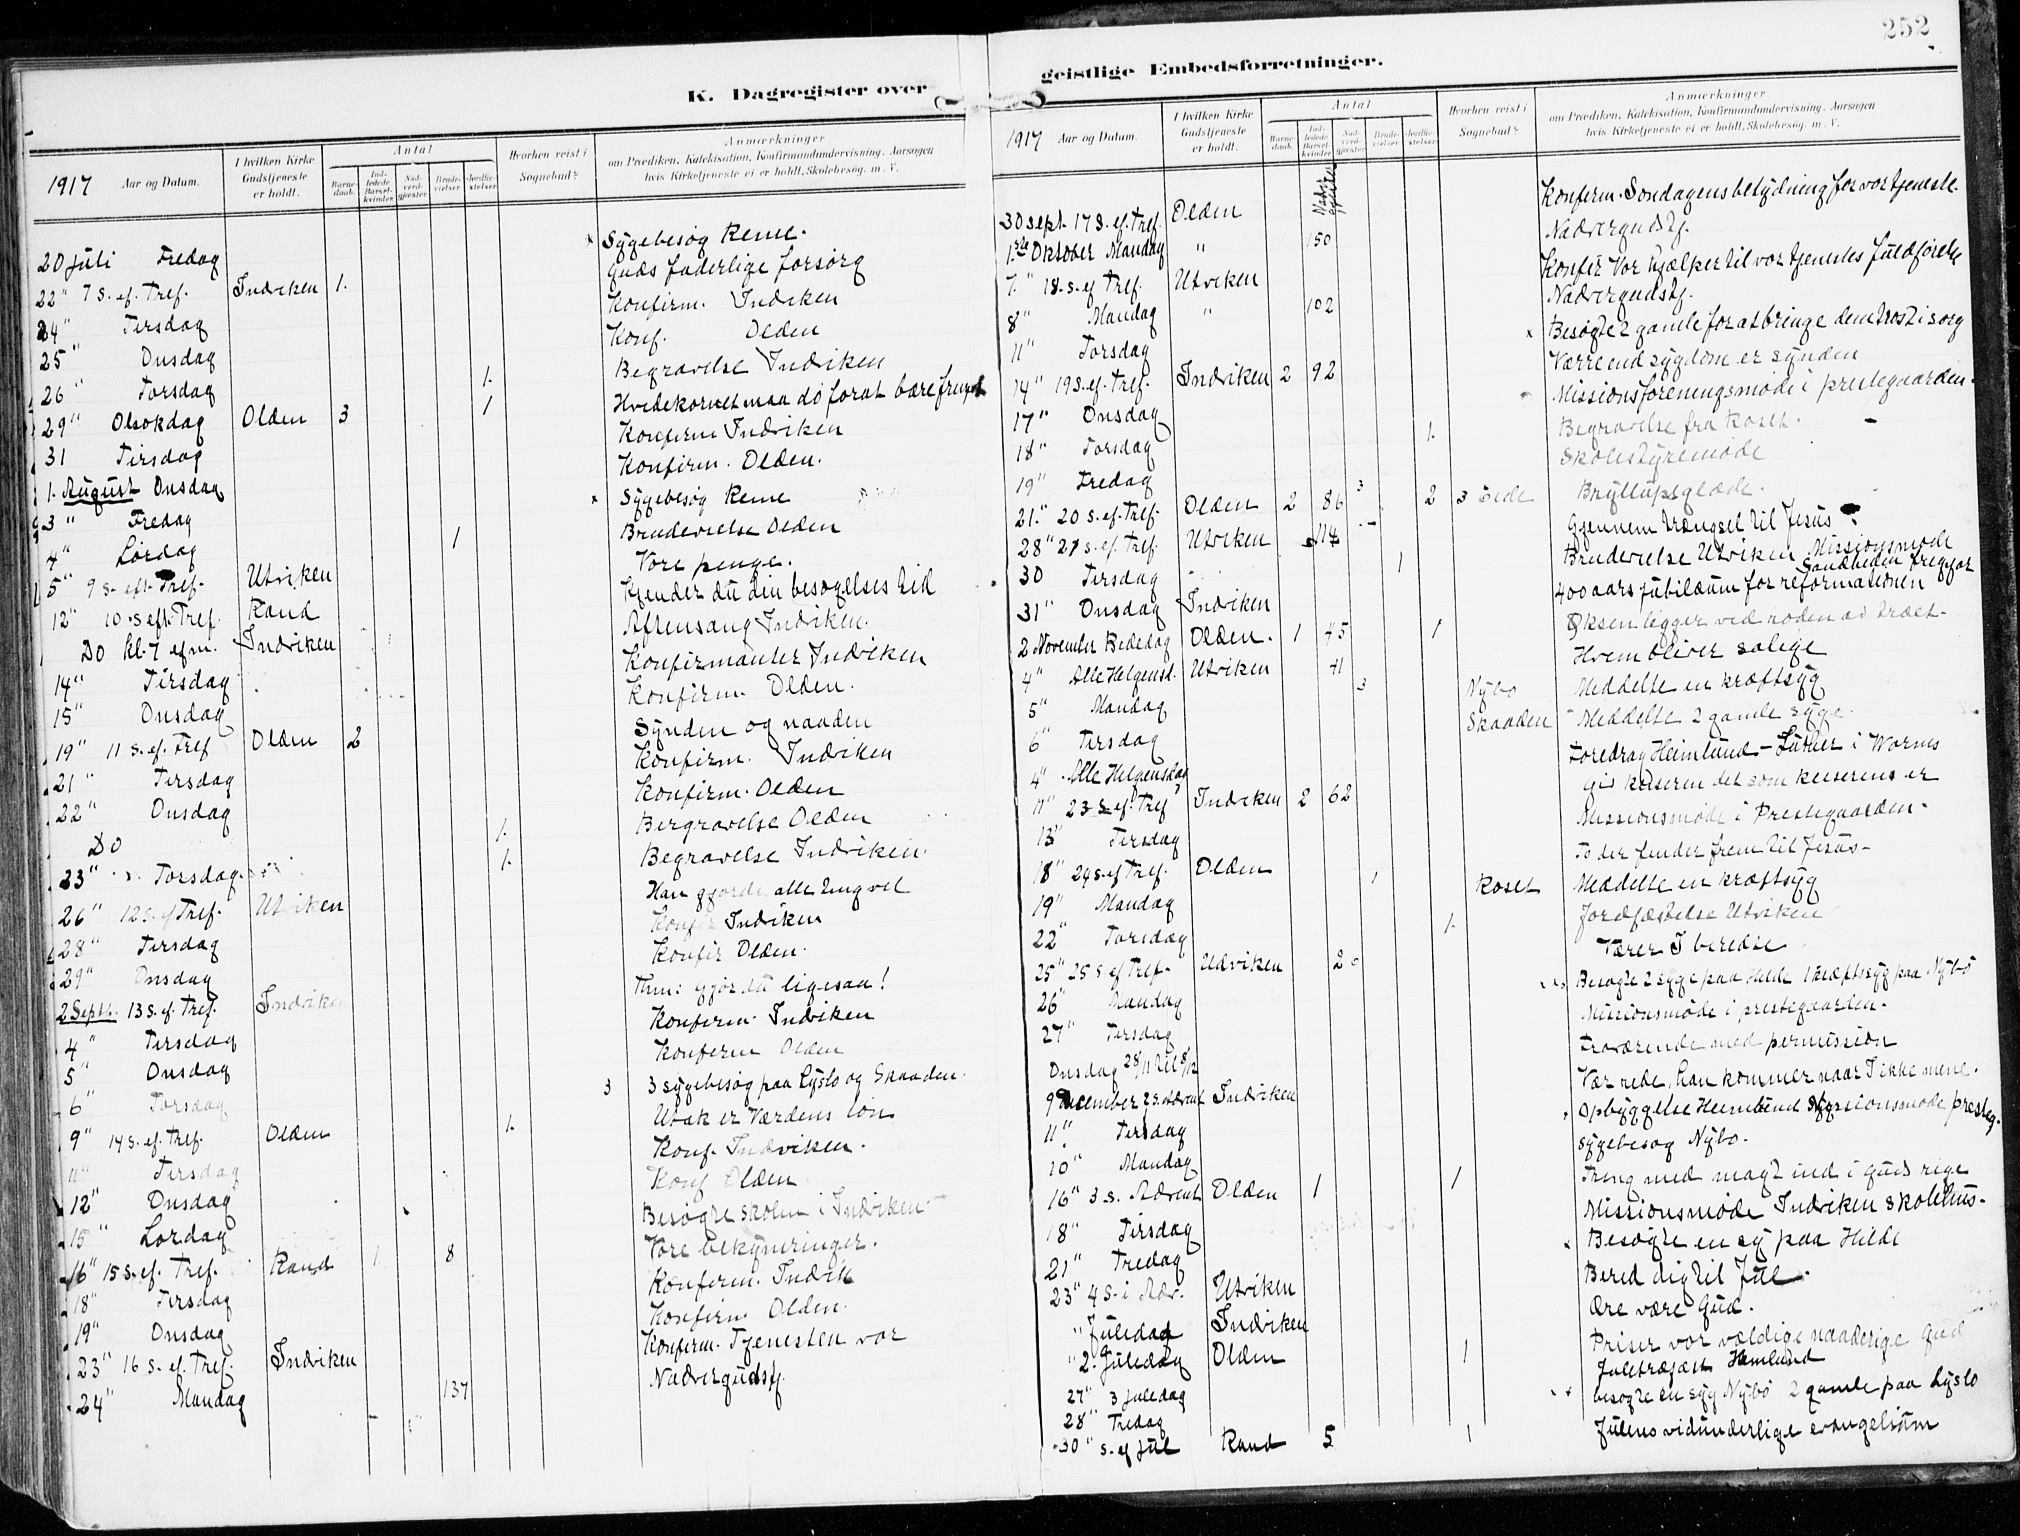 252
K. Dagregister over
1917 Aar og Datum. I hvilken Kirke Gudstjeneste er holdt. Antal Barnedaab. Indledede Barselkvinder Nadverdgjæster Brudevielser Jordfæstelser Hvorhen reist i Sognebud? Anmærkninger om Prædiken, Katekisation, Konfirmandundervisning, Aarsagen hvis Kirketjeneste ei er holdt, Skolebesøg, m. V.
20 Juli Fredag x Sygebesøg Reme.
22" 7 S. ef. Tref. Indviken 1. Guds faderlige forsørg
24" Tirsdag Konfirm. Indviken
25" Onsdag Konf. Olden
26" Torsdag 1. Begravelse Indviken
29" Olsokdag Olden 3 1 Hvedekornet maa dø forat bære frugt
31 Tirsdag Konfirm Indviken
1. August Onsdag Konfirm. Olden.
3" Fredag x Sygebesøg Reme
4" Lørdag 1 Brudevielse Olden
5" 9 S. eft. Tref. Utviken Vore penge.
12" 10. S eft. Tref. Rand Kjender du din besøgelses tid
Do kl. 7 efm. Indviken Aftensang Indviken.
14" Tirsdag Konfirmanter Indviken
15" Onsdag Konfirm. Olden.
19" 11 S. ef. Tref Olden 2 Synden og naaden
21" Tirsdag Konfirm. Indviken
22" Onsdag Konfirm. Olden
Do 1. Bergravelse Olden
23" Torsdag. 1. Begravelse Indviken.
26" 12 S. ef Tref. Utviken Han gjorde alle ting vel
28" Tirsdag Konfir Indviken
29" Onsdag Konfir Olden.
2 Septb. 13 S. ef. Tref. Indviken Thm: gjør du ligesaa!
4" Tirsdag Konfirm. Indviken
5" Onsdag Konfirm Olden
6" Torsdag 3 3 sygebesøg paa Lyslo og Skaaden.
9" 14 S. ef. Tref. Olden 1. Utak er Værdens løn
11" Tirsdag Konf. Indviken.
12" Onsdag Konf Olden
15" Lørdag Besøgte skolen i Indviken
16" 15 S. ef. Tref. Rand 1 8 Vore bekymringer.
18" Tirsdag Konfirm. Indvik
19" Onsdag Konfirm Olden.
23" 16 S. ef. Tref. Indviken Konfirm. Tjenesten vor
24" Mandag 137 Nadvergudstj.
geistlige Embedsforretninger.
1917 Aar og Datum. I hvilken Kirke Gudstjeneste er holdt. Antal Barnedaab. Indledede Barselkvinder Nadverdgjæster Brudevielser Jordfæstelser Hvorhen reist i Sognebud? Anmærkninger om Prædiken, Katekisation, Konfirmandundervisning, Aarsagen hvis Kirketjeneste ei er holdt, Skolebesøg, m. V.
30 Sept. 17 S. ef. Tref. Olden Konfirm. Søndagens betydning for vor tjeneste.
1.ste Oktober Mandag " 150 Nadvergudstj.
7." 18. S. ef Tref. Utviken Konfir Vor hjælper til vor tjenestes fuldførelse
8" Mandag " 102 Nadvergudstj.
11" Torsdag x Besøgte 2 gamle for at bringe dem trøst i sorg
14" 19 S. ef. Tref. Indviken 2 92 Værre end sygdom er synden
17" Onsdag Missionsforeningsmøde i prestegaarden.
18" Torsdag 1. Begravelse fra Koset.
19" Fredag Skolestyremøde
21." 20 S. ef. Tref. Olden 2 86 3 2 3 Eide Bryllupsglæde.
28" 21 S. ef. Tref. Utviken 114 Gjennem trængsel til Jesus
30 Tirsdag 1 Brudevielse Utviken Missionsmøde
31" Onsdag Indviken 400 aars jubilæum for reformationen Sandheden frigjør
2 November Bededag Olden. 1 45 1 Øksen ligger ved roden ad træet.
4" Alle Helgensd. Utviken 41 Hvem bliver salige
5" Mandag 3 Nybø Meddelte en kræftsyg
6" Tirsdag Skaaden Meddelte 2 gamle syge.
4" Alle Helgensdag Foredrag Heimlund - Luther i Worms
11" 23 S. ef. Tref Indviken 2 62 Giv keiseren det som keiserens er
13" Tirsdag Missionsmøde i Prestegaarden.
18" 24 S. ef Tref. Olden To der finder frem til Jesus.
19" Mandag 1 Koset Meddelte en kræftsyg
22" Torsdag 1. Jordfæstelse Utviken
25" 25 S ef Tref. Udviken 20 Værer I beredte
26" Mandag Besøgte 2 syge paa Hilde 1 kræftsyg paa Nybø
27" Tirsdag Missionsmøde i prestegaarden.
Onsdag 28/11 til 8/12 Fraværende med permission
9 December 2 S. Advent Indviken Vær rede, han kommer naar I ikke mene.
11" Tirsdag Opbyggelse Heimlund Missionsmøde presteg.
10" Mandag sygebesøg Nybø.
16" 3 S. Advent Olden 1 1 Træng med magt ind i Guds rige
18" Tirsdag Missionsmøde Indviken Skolehus.
21" Fredag x Besøgte en syg paa Hilde
23" 4 S. i Adv. Utviken Bered dig til Jul.
" Juledag Indviken Ære være Gud.
" 2. Juledag Olden 1 Priser vor vældige naaderige Gud
27" 3 juledag Juletræfæst Heimlund
28" Fredag besøgte en syg Nybø 2 gamle paa Lyslo
30" S. ef Jul Rand 5 1 Julens vidunderlige evangelium